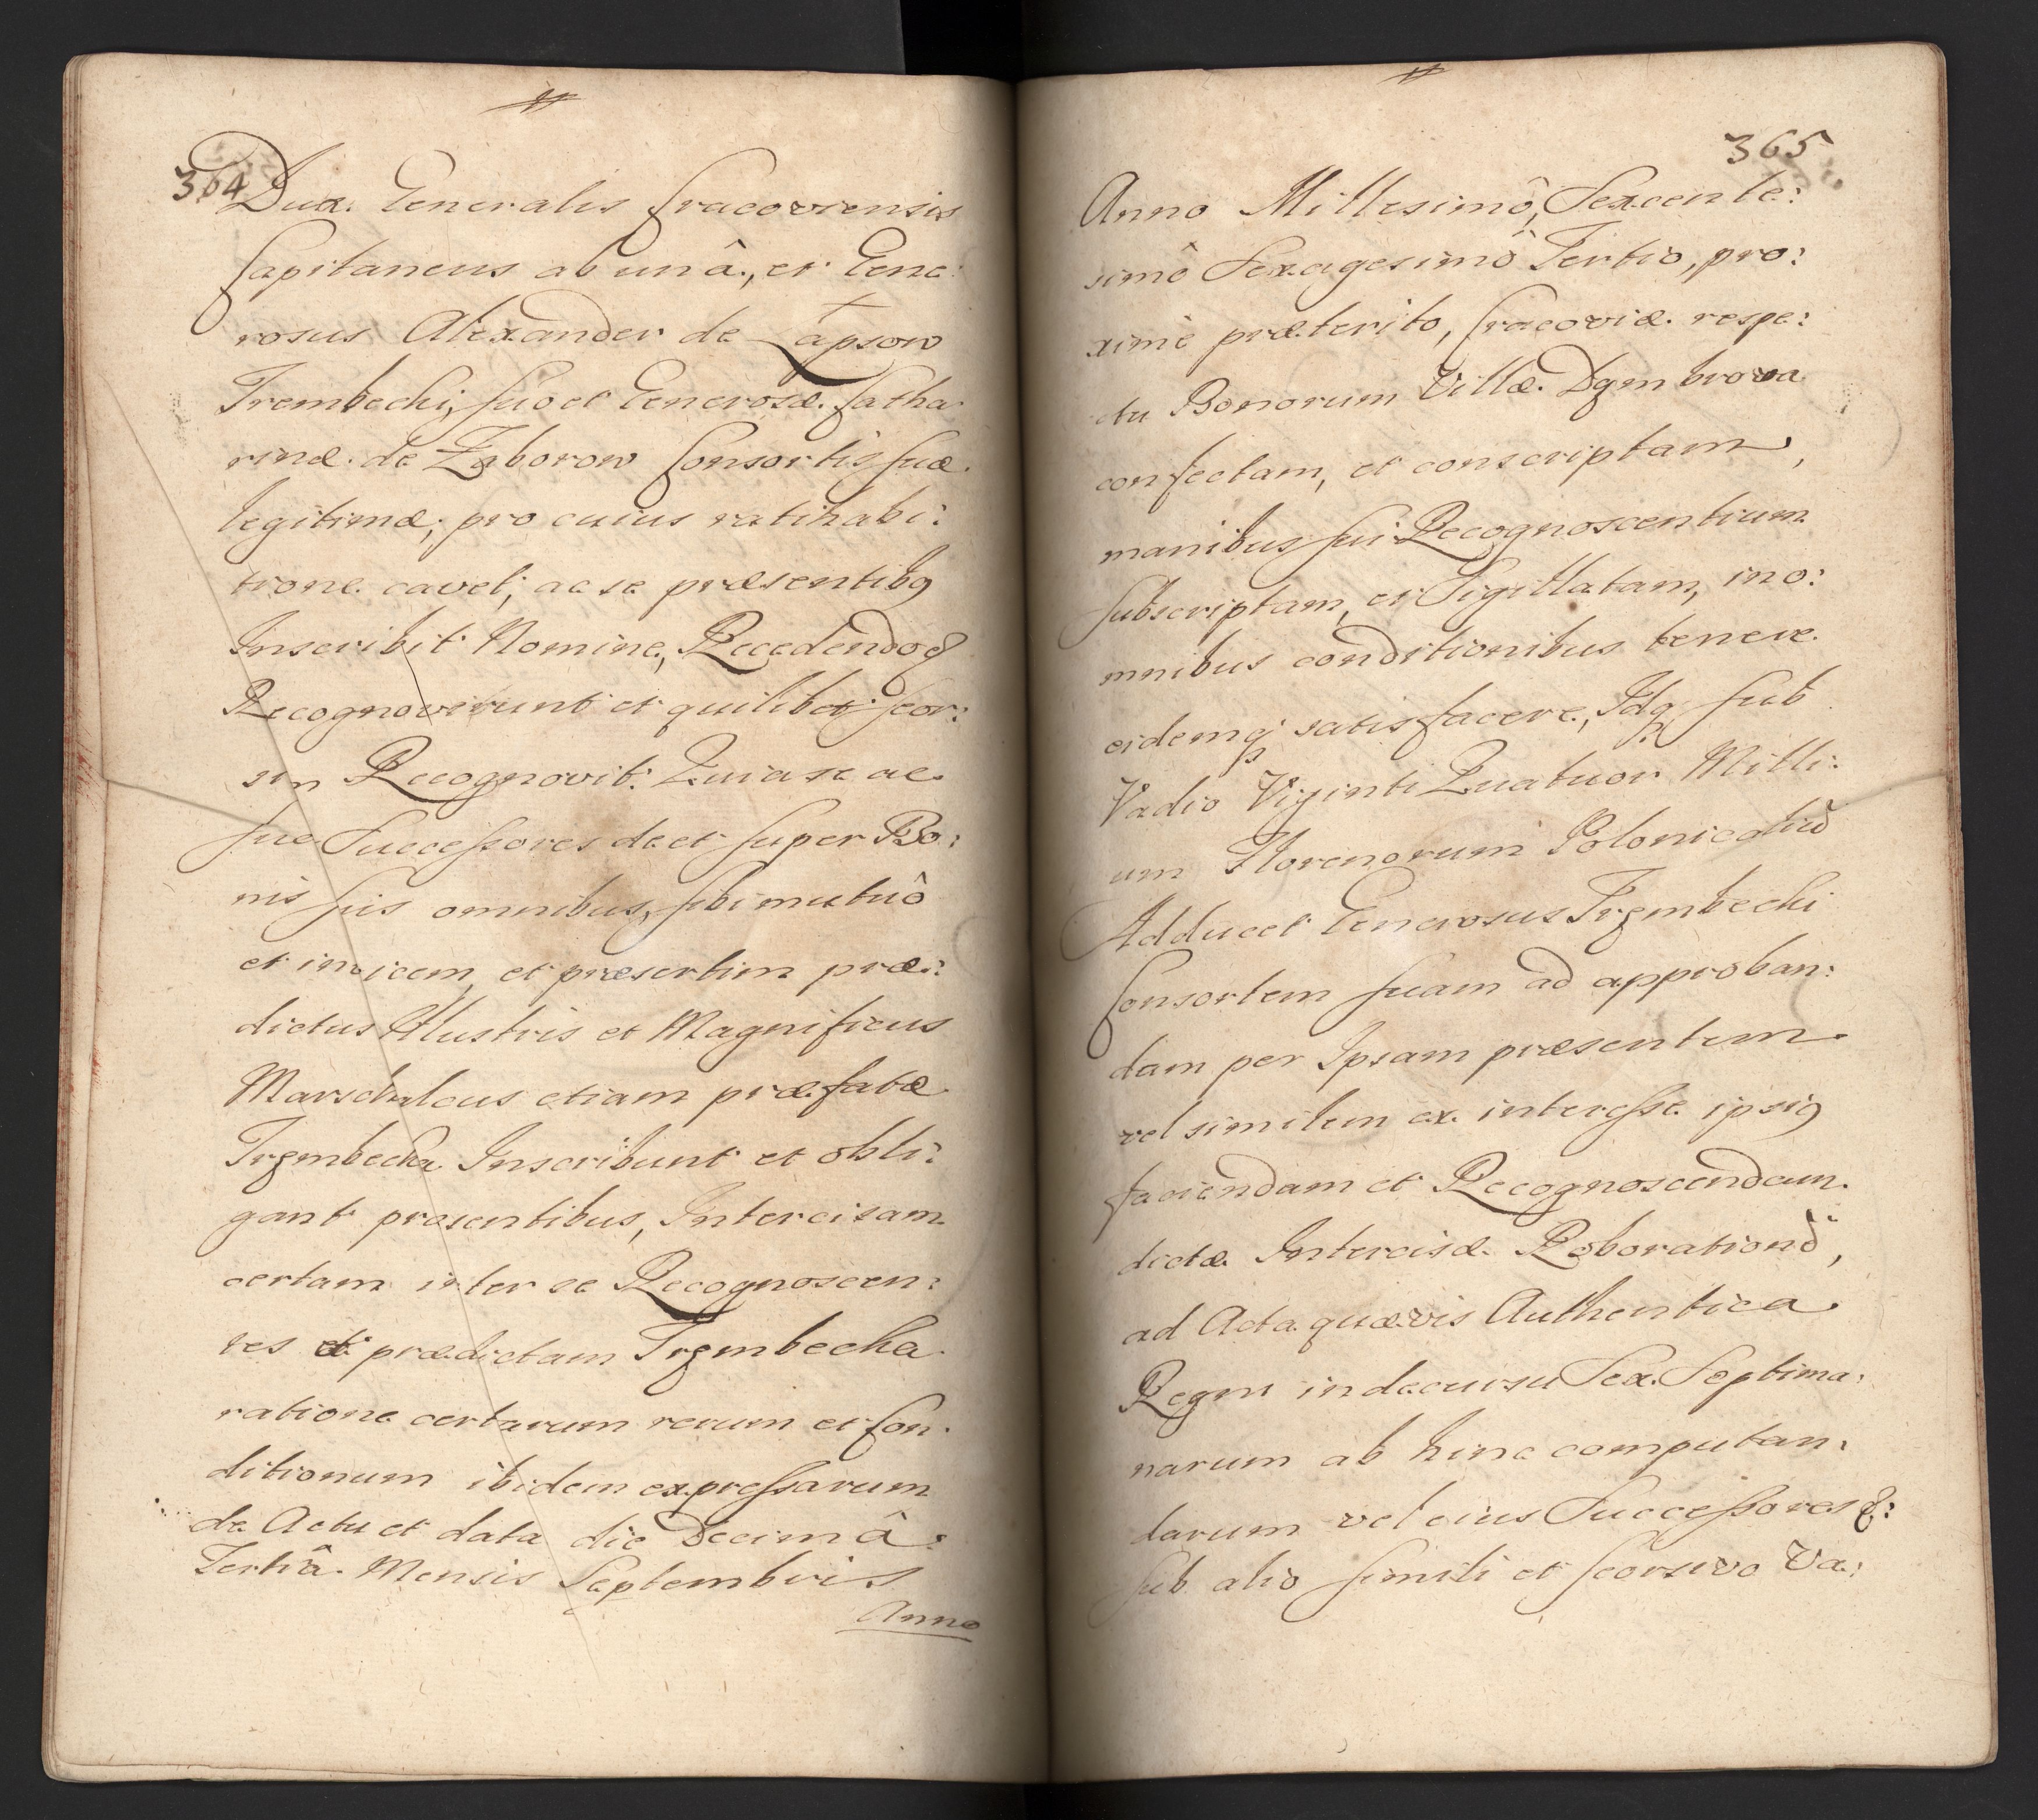 364
Dux. Generalis Cracoviensis
Capitaneus ab unâ, et Gene:
rosus Alexander de Łapsow
Trembecki, suo et Generosæ Catha
rinæ de Zaborow Consortis suæ
legitimæ, pro cuius ratihabi:
tione cavet, ac se præsentibq
Inscribit Nomine, Recedendoq
Recognoverunt et quilibet seor:
sim Recognovit. Quia se ac
sue Successores de et super Bo:
nis suis omnibus, sibi mutuô
et invicem, et præsertim præ:
dictus Illustris et Magnificus
Marschalcus etiam præfatæ
Trzmbecka Inscribunt et obli:
gant præsentibus, Intercisam
certam inter se Recognoscen:
tes et prædictam Trzmbecka
ratione certarum rerum et Con:
ditionum ibidem expressarum
de Actu et data die Decimâ
Tertiâ Mensis Septembris
Anno
365
Anno Millesimô, Sexcente:
simô Sexagesimô Tertio, pro:
ximè præterito, Cracoviæ respe:
ctu Bonorum Villæ Dzmbrowa
confectam, et conscriptam,
manibus sui Recognoscentium
subscriptam, et Sigillatam, in o:
mnibus conditionibus tenere
eidemq satisfacere, Idq sub
Vadio Viginti Quatuor Milli:
um Florenorum Polonicaliũ
Adducet Generosus Trzmbecki
Consortem suam ad approban:
dam per Ipsam præsentem
vel similem ex interesse ipsiq
faciendam et Recognoscendam
dictæ Intercisæ Roborationẽ,
ad Acta quævis Authentica
Regni in decursu Sex Septima:
narum ab hinc computan:
darum vel eius Successores &:
sub alio simili et seorsivo Va: